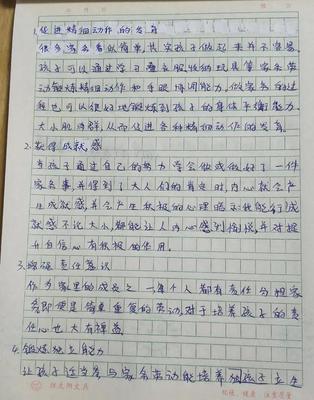 1.促进精细动作的发育
很多家务看似简单其实孩子做起来并不容易
孩子可以通过学习叠衣服收纳玩具等家务劳
动锻炼精细动作和手眼协调能力,做家务的过
程也可以很好地锻炼到孩子的身体平衡能力.
大小肌肉群,从而促进各种精细动作的发育.
2.获得成就感
当孩子通过自己的努力学会做或做好了一件
家务事,并得到了大人们的肯定时,内心就会产
生成就感,并会产生积极的心理暗示我能行!成
就感不论大小,都能让人内心感到愉悦,并对提
升自信心有积极的作用.
3.增强责任意识
作为家里的成员之一每个人都有责任分担家
务即便是简单重复的劳动,对于培养孩子的责
任心也大有裨益
4.锻炼独立能力
让孩子适当参与家务劳动能培养他孩子